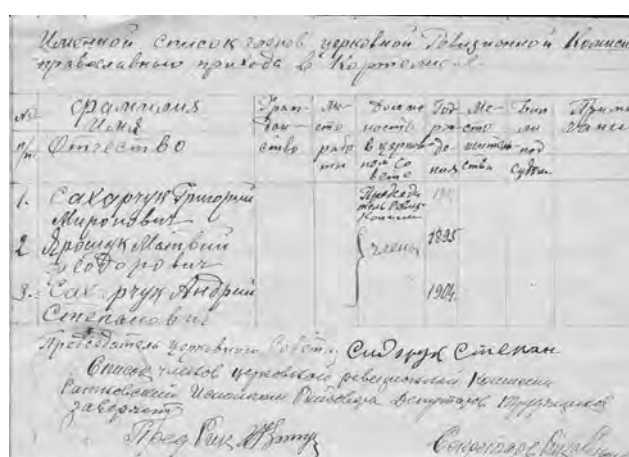 Именной список членов церковной Ревизионной Комиси
православного прихода в Кортелисах
№ п/п. Фамилия Имя Отчество
Граж-дан-ство
Ме-сто рабо-ты
Должность в церков-ном Со-вете
Год рж-де-ния
Ме-сто жительства
Был ли под Судом
Приме-чание
1. Сахарчук Григорий Миронович
Председатель Ревиз. Комисии
2 Ярощук Матвий Феодорович
члены
1895
3. Сахарчук Андрий Степанович
1904
Председатель церковного Совета: Сидорук Степан
Список членов церковной ревизионной Комиссии
Ратновский Исполком Райсовета Депутатов Трудящихся
заверяет
Пред Рик
Секретарь